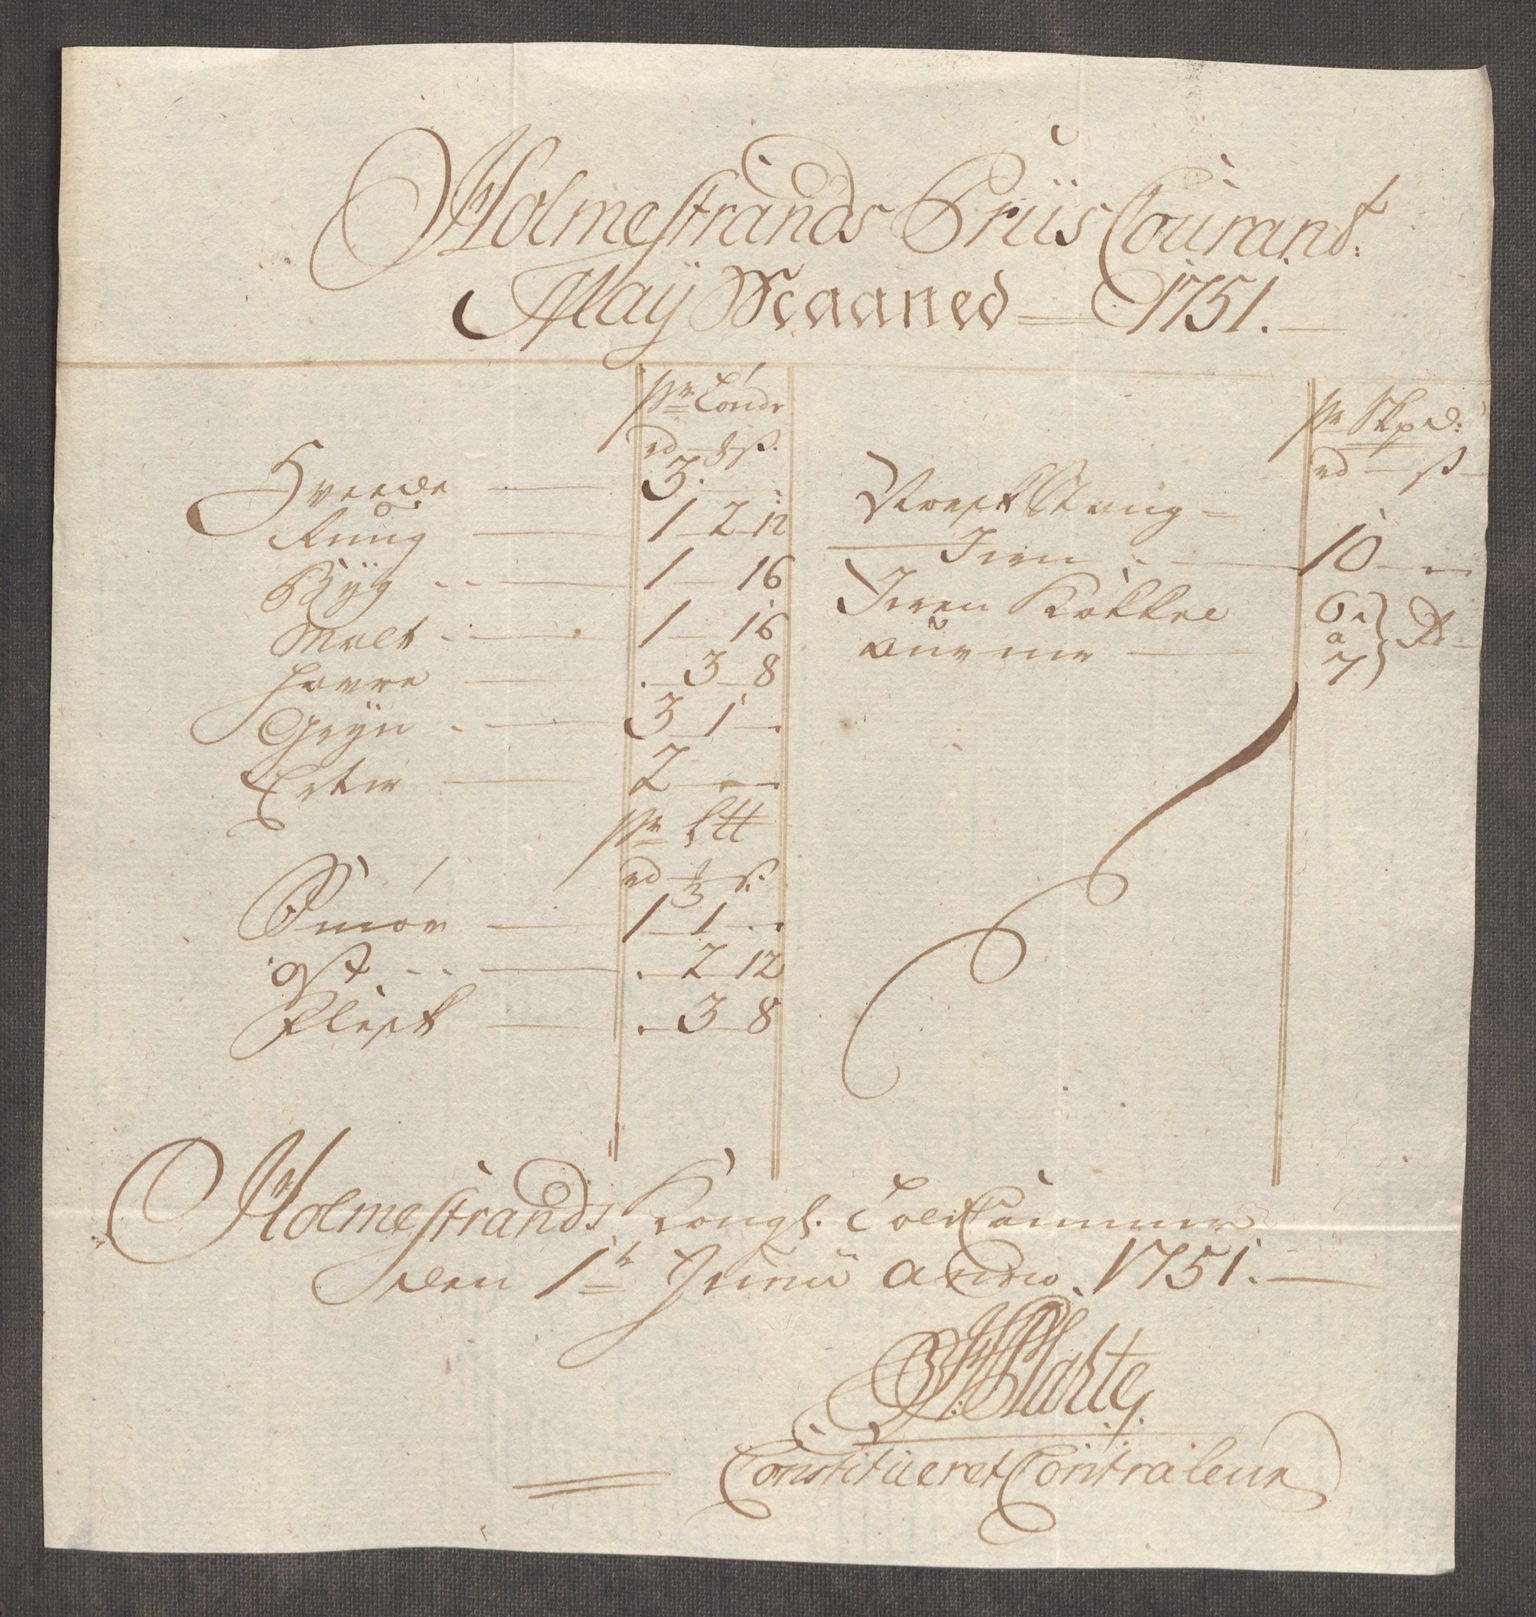 Holmestrands Priis Courant:
Maÿ Maaned 1751.
pr Tønde
rd ß.
Hvede 3.
Rúug 1 2 12
Bÿg 1 16
Malt 1 16
Havre . 3 8
Grÿn 3 1 .
Erter 2 . .
pr L℔
rd ß.
Smør 1 1 . .
ost . 2 12
Flesk . 3 8
pr Skpd:
rd ß
Norsk Stang
Jern 10
Jern Kakkel
aúvne 6 a 7 Rd
Holmestrands Kongl. Told Cammer
den 1te Junii Anno 1751.
Constitueret Contraleur